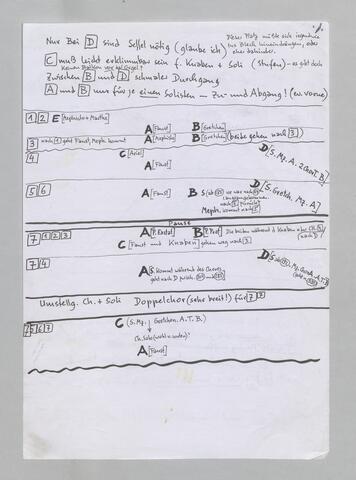 Nur Bei D sind Sessel nötig (glaube ich)
Dieser Platz müßte sich irgendwie
ins Blech hineindrängen, oder
eher dahinter.
C muß leicht erklimmbar sein f. Knaben + Soli (Stufen) – es gibt doch
keinen Balkon vor der Orgel?
Zwischen B und D schmaler Durchgang
A und B nur für je einen Solisten – Zu- und Abgang! (ev. vorne)
1 2 E [Mephisto + Marthe]
A [Faust] B [Gretchen]
3 nach 1 geht Faust, Meph. kommt A [Mephisto] B [Gretchen] (beide gehen nach 3)
4 C [Ariel] D [S. Mz. A. 2 Ten. B]
A [Faust]
5 6 D [S. Gretch. Mz. A]
A [Faust] B
Meph. kommt nach 5
Pause
7 1 2 3 A [P. Exstat.] B [P. Prof.] Die beiden während d. Knaben
C [Faust und Knaben] gehen weg nach 3
7 4
A [S. kommt während des Chores,
geht nach D zwisch.
Umstellg. Ch. + Soli Doppelchor (sehr breit!) für 7
7 5 6 7 C (S. Mz. Gretchen. A. T. B.)
Ch. Solo (wohl v. unten?)
A [Faust]